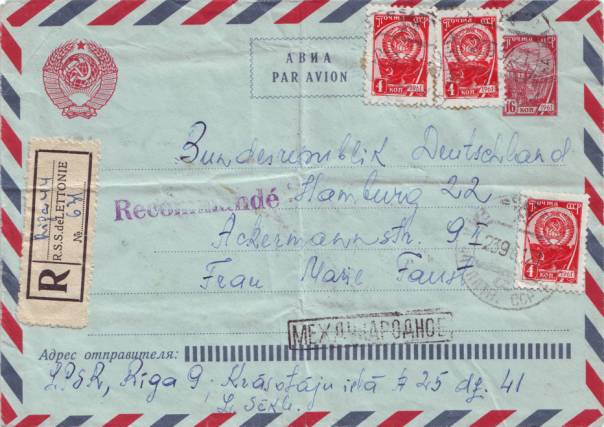 АВИА
PAR AVION
ПОЧТА СССР
4 КОП 1961
ПОЧТА СССР
4 КОП 1961
ПОЧТА СССР
16 КОП 1961
Bundesrepublik Deutschland
Hamburg 22
Recommandé
Ackermannstr. 9 I
Frau Marie Faust
R
R.S.S. de LETTONIE
№
ПОЧТА СССР
4 КОП 1961
МЕЖДУНАРОДНОЕ
Адрес отправителя:
LPSR, Riga 9, Krāsotāju ielā # 25 dz. 41